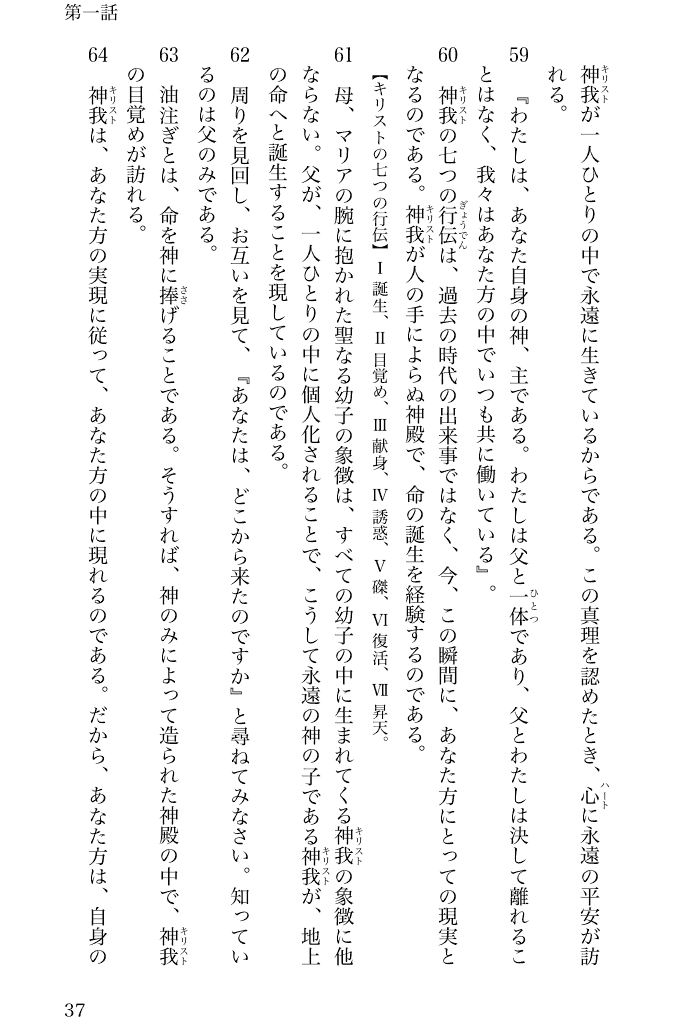 第一話
神我が一人ひとりの中で永遠に生きているからである。この真理を認めたとき、心に永遠の平安が訪
れる。
59　『わたしは、あなた自身の神、主である。わたしは父と一体であり、父とわたしは決して離れるこ
とはなく、我々はあなた方の中でいつも共に働いている』。
60　神我の七つの行伝は、過去の時代の出来事ではなく、今、この瞬間に、あなた方にとっての現実と
なるのである。神我が人の手によらぬ神殿で、命の誕生を経験するのである。
【キリストの七つの行伝】Ⅰ誕生、Ⅱ目覚め、Ⅲ献身、Ⅳ誘惑、Ⅴ磔、Ⅵ復活、Ⅶ昇天。
61　母、マリアの腕に抱かれた聖なる幼子の象徴は、すべての幼子の中に生まれてくる神我の象徴に他
ならない。父が、一人ひとりの中に個人化されることで、こうして永遠の神の子である神我が、地上
の命へと誕生することを現しているのである。
62　周りを見回し、お互いを見て、『あなたは、どこから来たのですか』と尋ねてみなさい。知ってい
るのは父のみである。
63　油注ぎとは、命を神に捧げることである。そうすれば、神のみによって造られた神殿の中で、神我
の目覚めが訪れる。
64　神我は、あなた方の実現に従って、あなた方の中に現れるのである。だから、あなた方は、自身の
37
キリスト
ハート
ひとつ
キリスト
ぎょうでん
キリスト
キリスト
キリスト
ささ
キリスト
キリスト